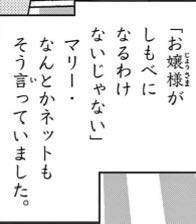 「お嬢様が
しもべに
なるわけ
ないじゃない」
マリー・
なんとかネットも
そう言っていました。